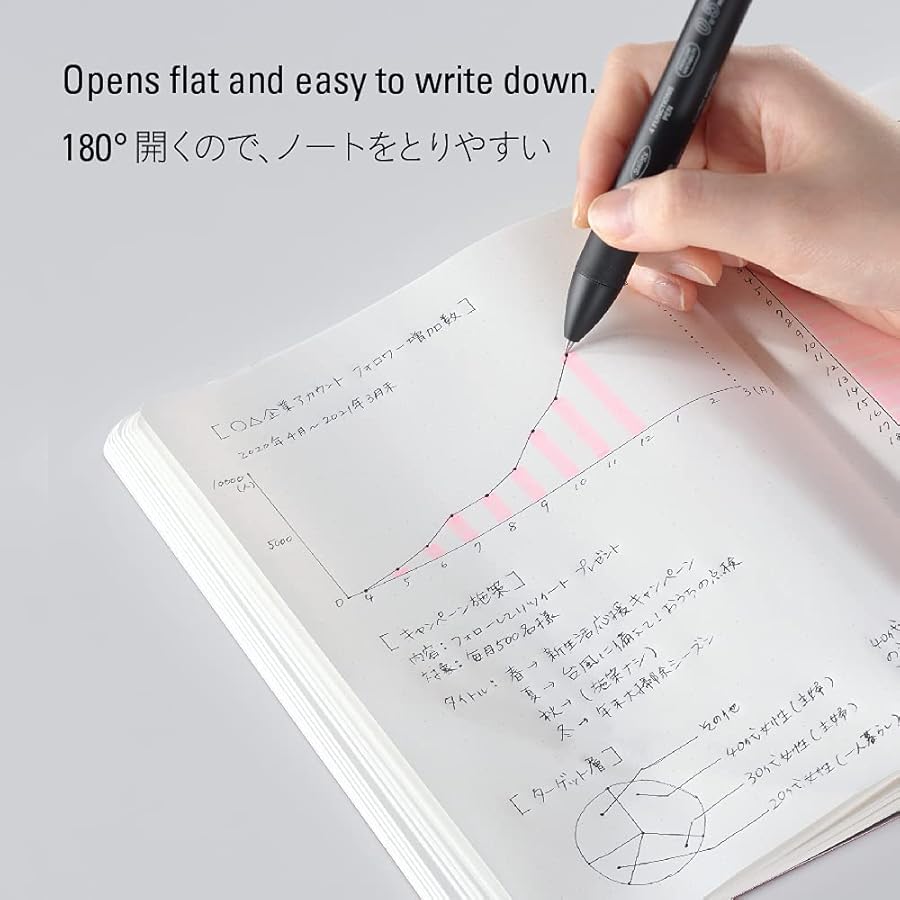 Opens flat and easy to write down.
180° 開くので、ノートをとりやすい
4 FUNCTION
PEN
[ ○△企業アカウント フォロワー増加数 ]
2020年4月〜2021年3月末
10000
(人)
5000
0
4 5 6 7 8 9 10 11 12 1 2 3(月)
[ キャンペーン施策 ]
内容：フォローしてリツイート プレゼント
対象：毎月500名様
タイトル：春→ 新生活応援キャンペーン
夏→ 台風に備えて！おうちの点検
秋→ (施策ナシ)
冬→ 年末大掃除シーズン
[ ターゲット層 ]
その他
40代女性(主婦)
30代女性(主婦)
20代女性(一人暮らし)
4
5
6
7
8
9
10
11
12
13
14
15
16
17
18
40代
の